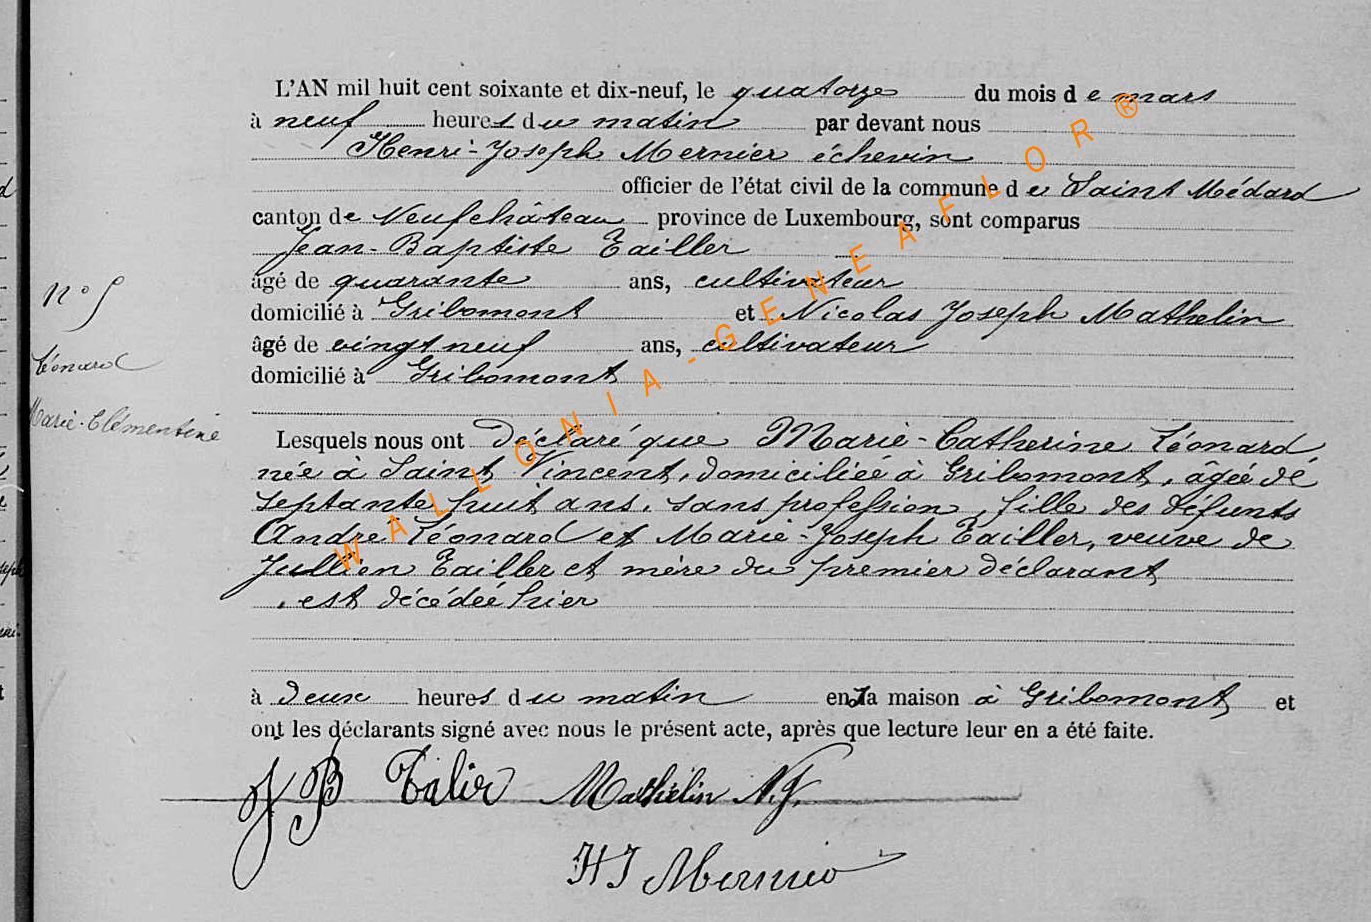 L'AN mil huit cent soixante et dix-neuf, le quatorze du mois de mars
à neuf heures du matin par devant nous
Henri-Joseph Mernier échevin
officier de l'état civil de la commune de Saint Médard
canton de Neufchâteau province de Luxembourg, sont comparus
Jean-Baptiste Tailler
âgé de quarante ans, cultivateur
domicilié à Gribomont et Nicolas Joseph Mathelin
âgé de vingt neuf ans, cultivateur
domicilié à Gribomont
N° 5
Léonard
Marie-Clémentine
Lesquels nous ont déclaré que Marie-Catherine Léonard,
née à Saint Vincent, domiciliée à Gribomont, âgée de
septante huit ans, sans profession, fille des défunts
André Léonard et Marie-Joseph Tailler, veuve de
Jullien Tailler et mère du premier déclarant
, est décédée hier
à deux heures du matin en la maison à Gribomont et
ont les déclarants signé avec nous le présent acte, après que lecture leur en a été faite.
J B Talier Mathelin N.J.
HJ Mernier
WALLONIA-GENEAFLOR®